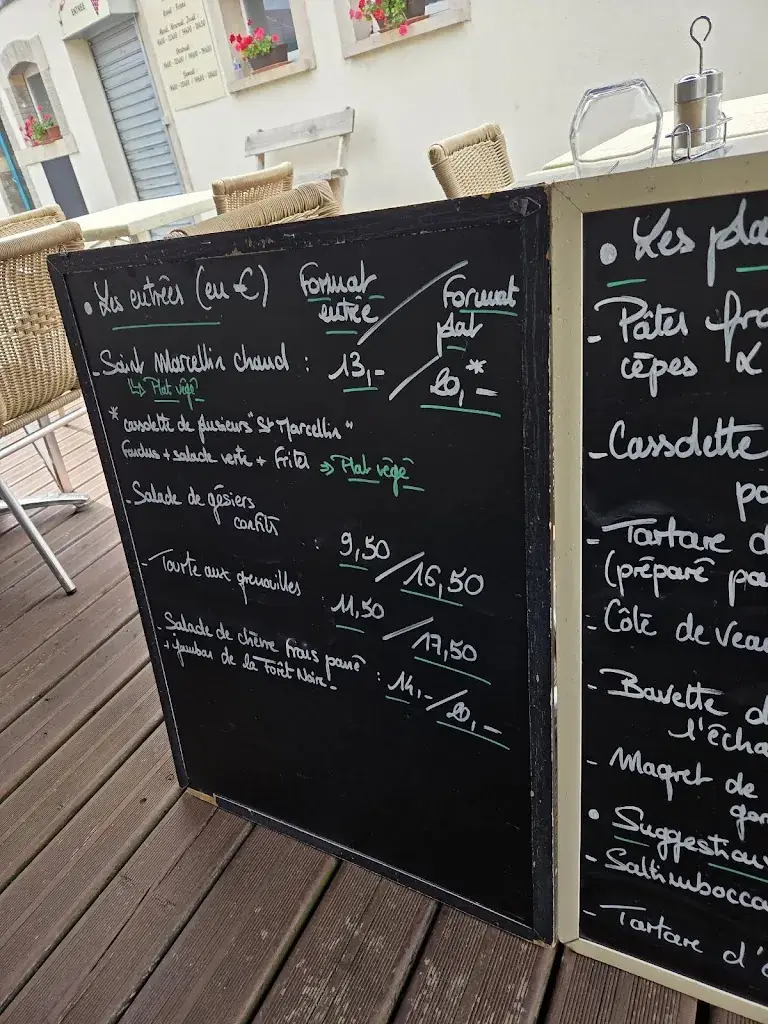 ENTRÉE
• Les entrées (en €) Format entrée / Format plat
- Saint Marcellin chaud : 13,- / 20,-*
↳ Plat végé
* cassolette de plusieurs "St Marcellin"
fondus + salade verte + Frites => Plat végé
- Salade de gésiers
confits : 9,50 / 16,50
- Tourte aux grenouilles 11,50 / 17,50
- Salade de chèvre frais pané
+ jambon de la Forêt Noire : 14,- / 20,-
• Les pla
- Pâtes fra
cèpes &
- Cassolette
po
- Tartare d
(préparé pa
- Côte de veau
- Bavette d
l'écha
- Magret de
gar
• Suggestions
- Saltimbocca
- Tartare d'